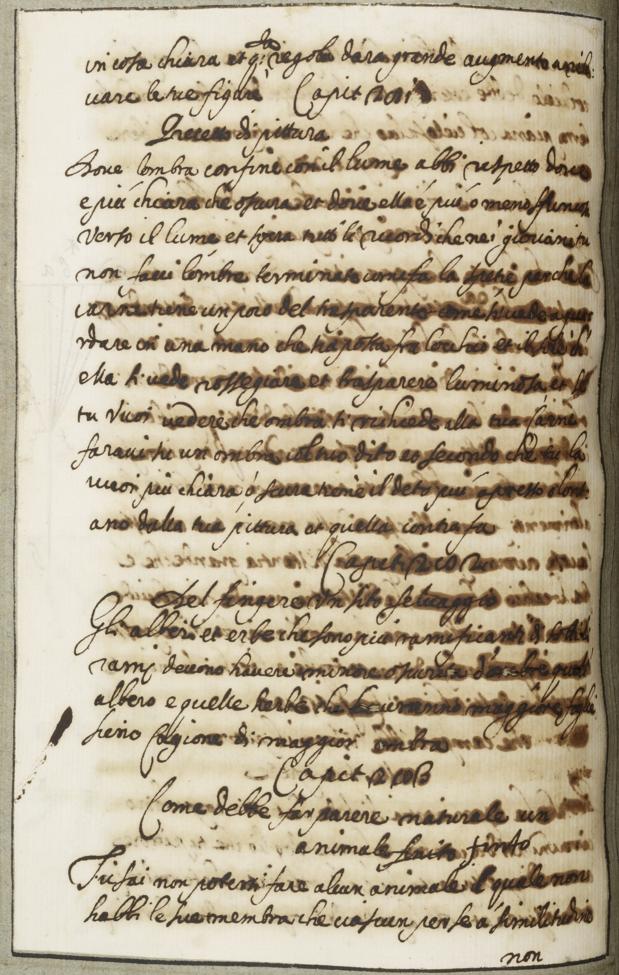 in cosa chiara et q.sta regola dara grande augmento a rile:
uare le tue figure Capit 201
Precetto di pittura
Dove lombra confina con il lume abbi rispetto dove
e piu chiara che oscura et dove ella é piu o meno sfumosa
verso il lume et sopra tutti li ricordi che nei giovani tu
non facci lombre terminate come fa la pietra perche la
carne tiene un poco del trasparente come si vede a gua
rdare in una mano che sia posta fra locchio et il sole ch
ella si vede rossegiare et trasparere luminosa et se
tu vuoi vedere che ombra si richiede alla tua carne
faravi tu un ombra col tuo dito et secondo che tu la
vuoi piu chiara o scura tieni il deto piu apresso o lont
ano dalla tua pittura et quella contrafa
Capit 202
Del fingere un sito selvaggio
Gli alberi et erbe che sono piu ramificanti di sottili
rami devono havere minore oscurita d'ombre quel
albero e quelle herbe che haveranno maggiore foglie
sieno Cagione di maggior ombra
Capit 203
Come debbe far parere naturale un
animale finto
Tu sai non potersi fare alcun animale il quale non
habbi le sue membra che ciascun per se a similitudine
non